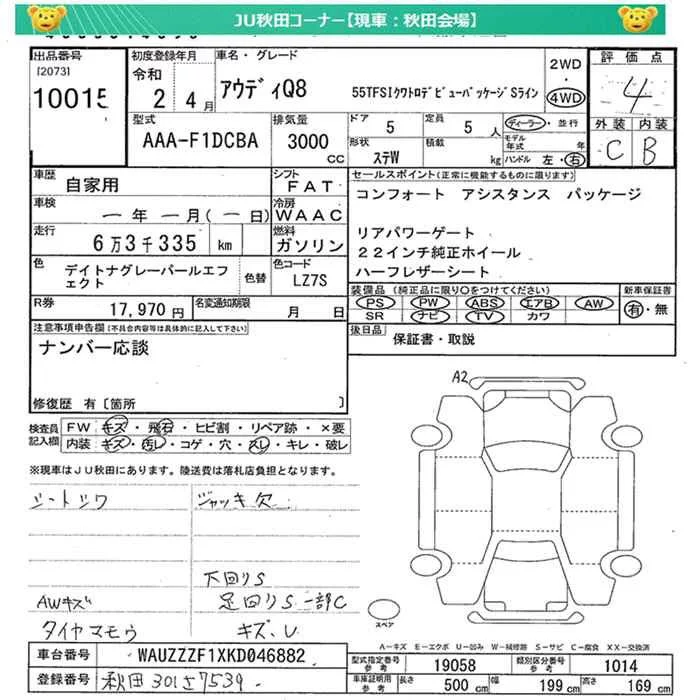 JU秋田コーナー【現車：秋田会場】
出品番号
[2073]
10015
初度登録年月
令和
2年 4月
車名・グレード
アウディQ8
55TFSIクワトロデビューパッケージSライン
2WD
・
4WD
評価点
4
外装 内装
C B
型式
AAA-F1DCBA
排気量
3000
cc
ドア
5
定員
5 人
形状
ステW
積載
kg
ディーラー・並行
モデル年式 年
ハンドル 左・右
車歴
自家用
シフト
FAT
車検
ー年 ー月(ー日)
冷房
WAAC
走行
6万3千335 km
燃料
ガソリン
色
デイトナグレーパールエフェクト
色替
色コード
LZ7S
R券
17,970 円
名変通知期限
月 日
セールスポイント(正常に機能するものに限ります)
コンフォート アシスタンス パッケージ
リアパワーゲート
22インチ純正ホイール
ハーフレザーシート
装備品 (純正品に限り○をつけてください)
PS PW ABS エアB AW
SR ナビ TV カワ
新車保証書
有・無
後日品
保証書・取説
注意事項申告欄(不具合内容等は具体的に記入して下さい)
ナンバー応談
修復歴 有[箇所 ]
検査員記入欄
FW キズ・飛石・ヒビ割・リペア跡・×要
内装 キズ・汚レ・コゲ・穴・スレ・キレ・破レ
※現車はJU秋田にあります。陸送費は落札店負担となります。
シートシワ
ジャッキ欠
下回りS
AWキズ
足回りS 一部C
タイヤマモウ
キズ、U
A2
スペア
A－キズ E－エクボ U－凹み W－補修跡 S－サビ C－腐食 XX－交換済
車台番号
WAUZZZF1XKD046882
登録番号
秋田 301さ7539
型式指定番号
参考
19058
類別区分番号
参考
1014
車体証明用
参考
長さ
500 cm
幅
199 cm
高さ
169 cm